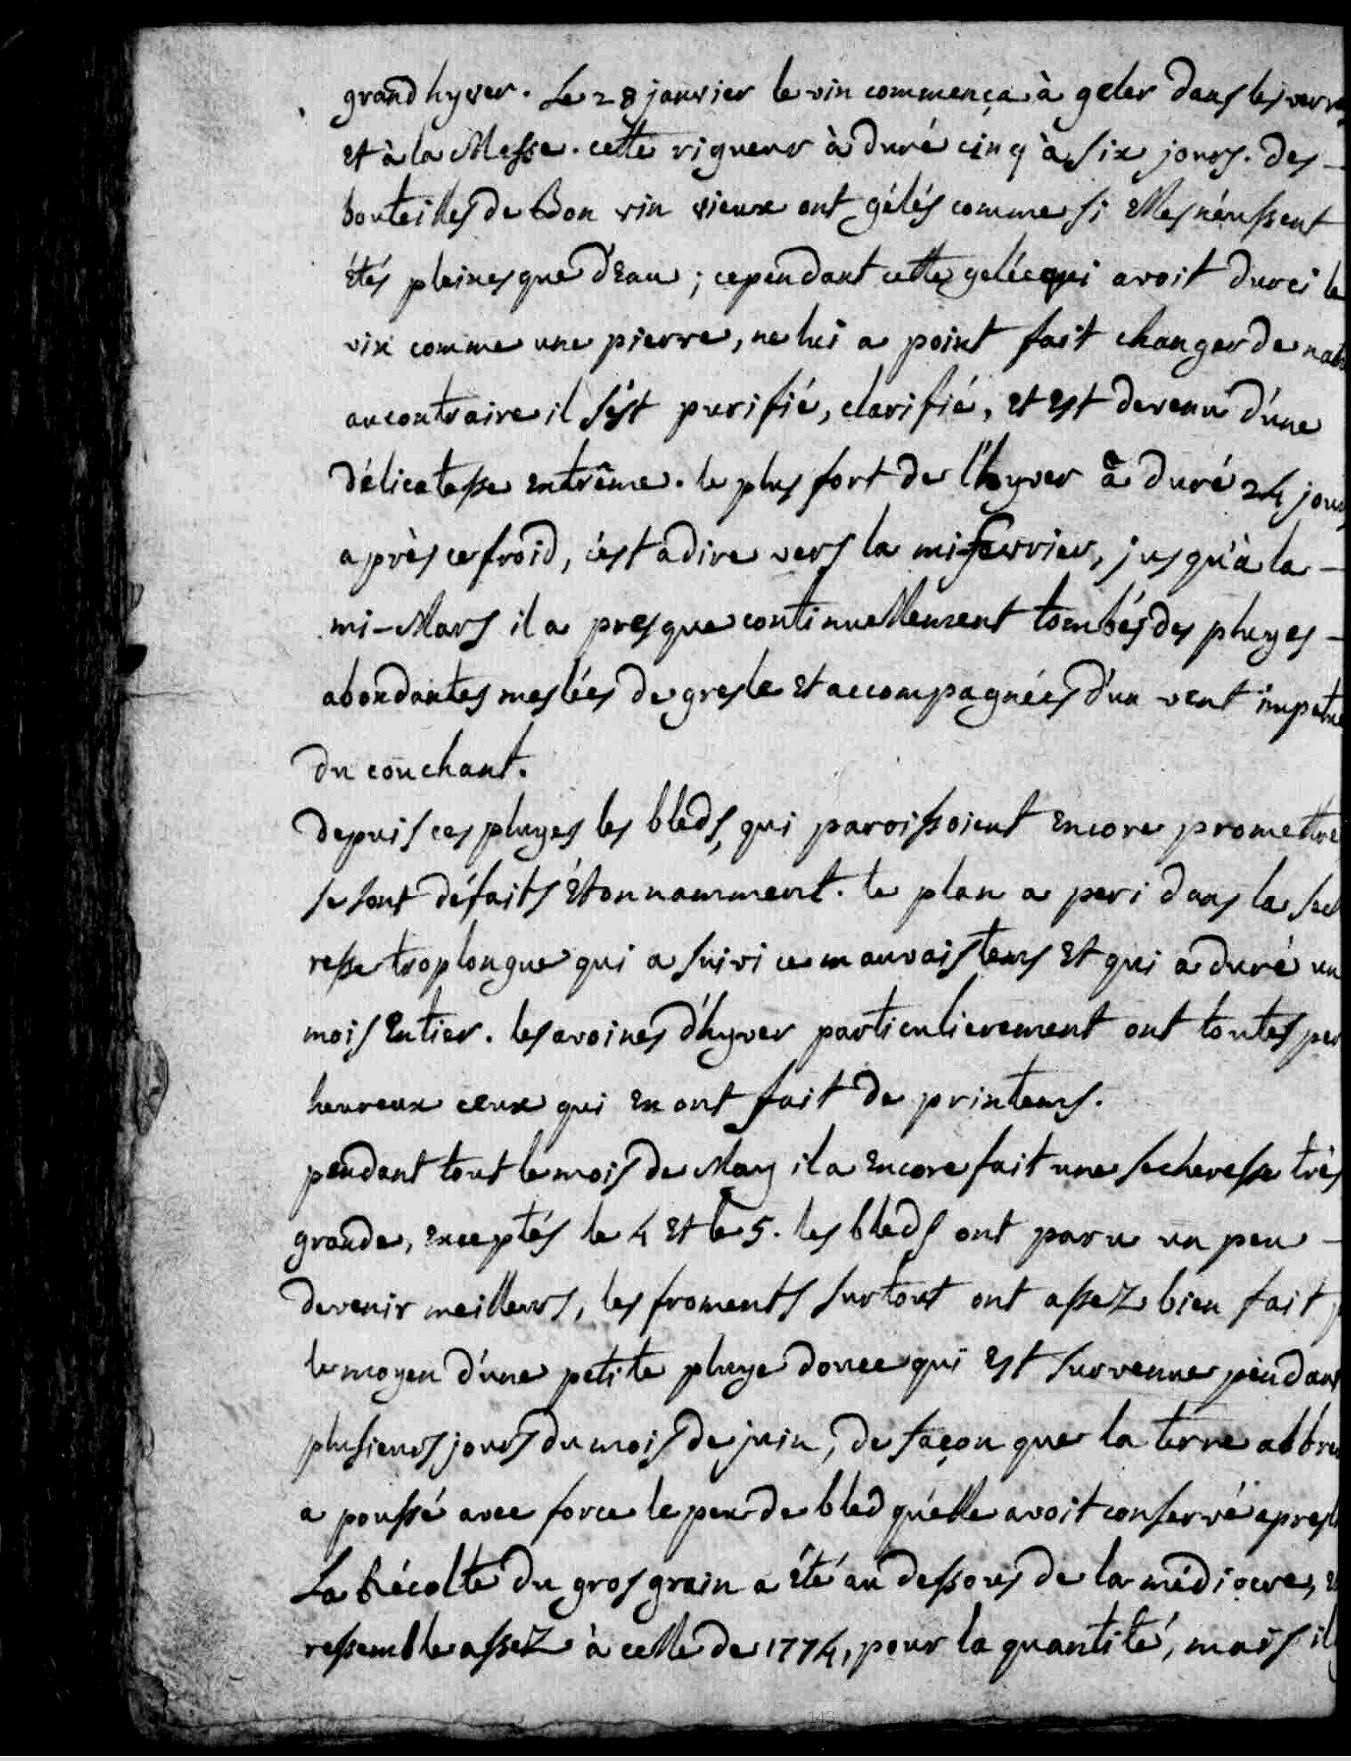 grand hyver. Le 28 janvier le vin commença à geler dans les verres
et à la Messe. cette rigueur à duré cinq à six jours. des -
bouteilles de Bon vin vieux ont gélés comme si elles n'éussent
étés pleines que d'eau ; cependant cette gelée qui avoit durci le
vin comme une pierre, ne lui a point fait changer de
au contraire il s'est purifié, clarifié, et est devenu d'une
délicatesse extrême. le plus fort de l'hyver à duré 24 jours
après ce froid, c'est adire vers la mi-fevrier, jusqu'à la -
mi-Mars il a presque continuellement tombés des pluyes -
abondantes meslées de gresle et accompagnées d'un vent impetu
du couchant.
depuis ces pluyes les bleds, qui paroissoient encore promettre
se sont défaits étonnamment. le plan a peri dans la sech
resse trop longue qui a suivi ce mauvais tems et qui a duré un
mois entier. les avoines d'hyver particulierement ont toutes per
heureux ceux qui en ont fait de printems.
pendant tout le mois de May il a encore fait une secheresse très
grande, exceptés le 4 et le 5. les bleds ont paru un peu -
devenir meilleurs, les froments surtout ont assez bien fait
le moyen d'une petite pluye douce qui est survenue pendant
plusieurs jours du mois de juin, de façon que la terre abbreu
a poussé avec force le peu de bled qu'elle avoit conservé apres
La Récolte du gros grain a été au dessous de la médiocre,
ressemble assez à celle de 1774, pour la quantité, mais il